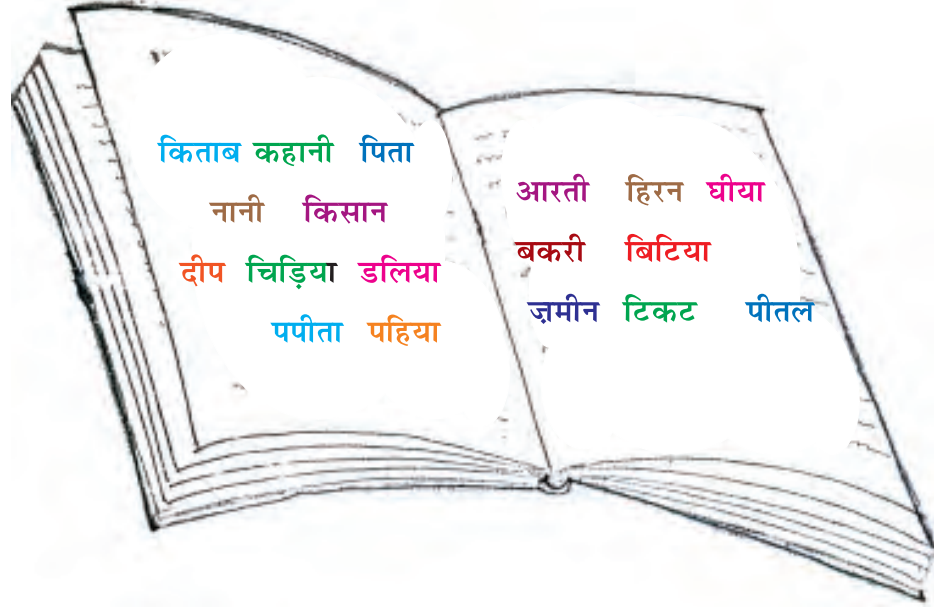 किताब कहानी पिता
नानी किसान
दीप चिड़िया डलिया
पपीता पहिया
आरती हिरन घीया
बकरी बिटिया
ज़मीन टिकट पीतल